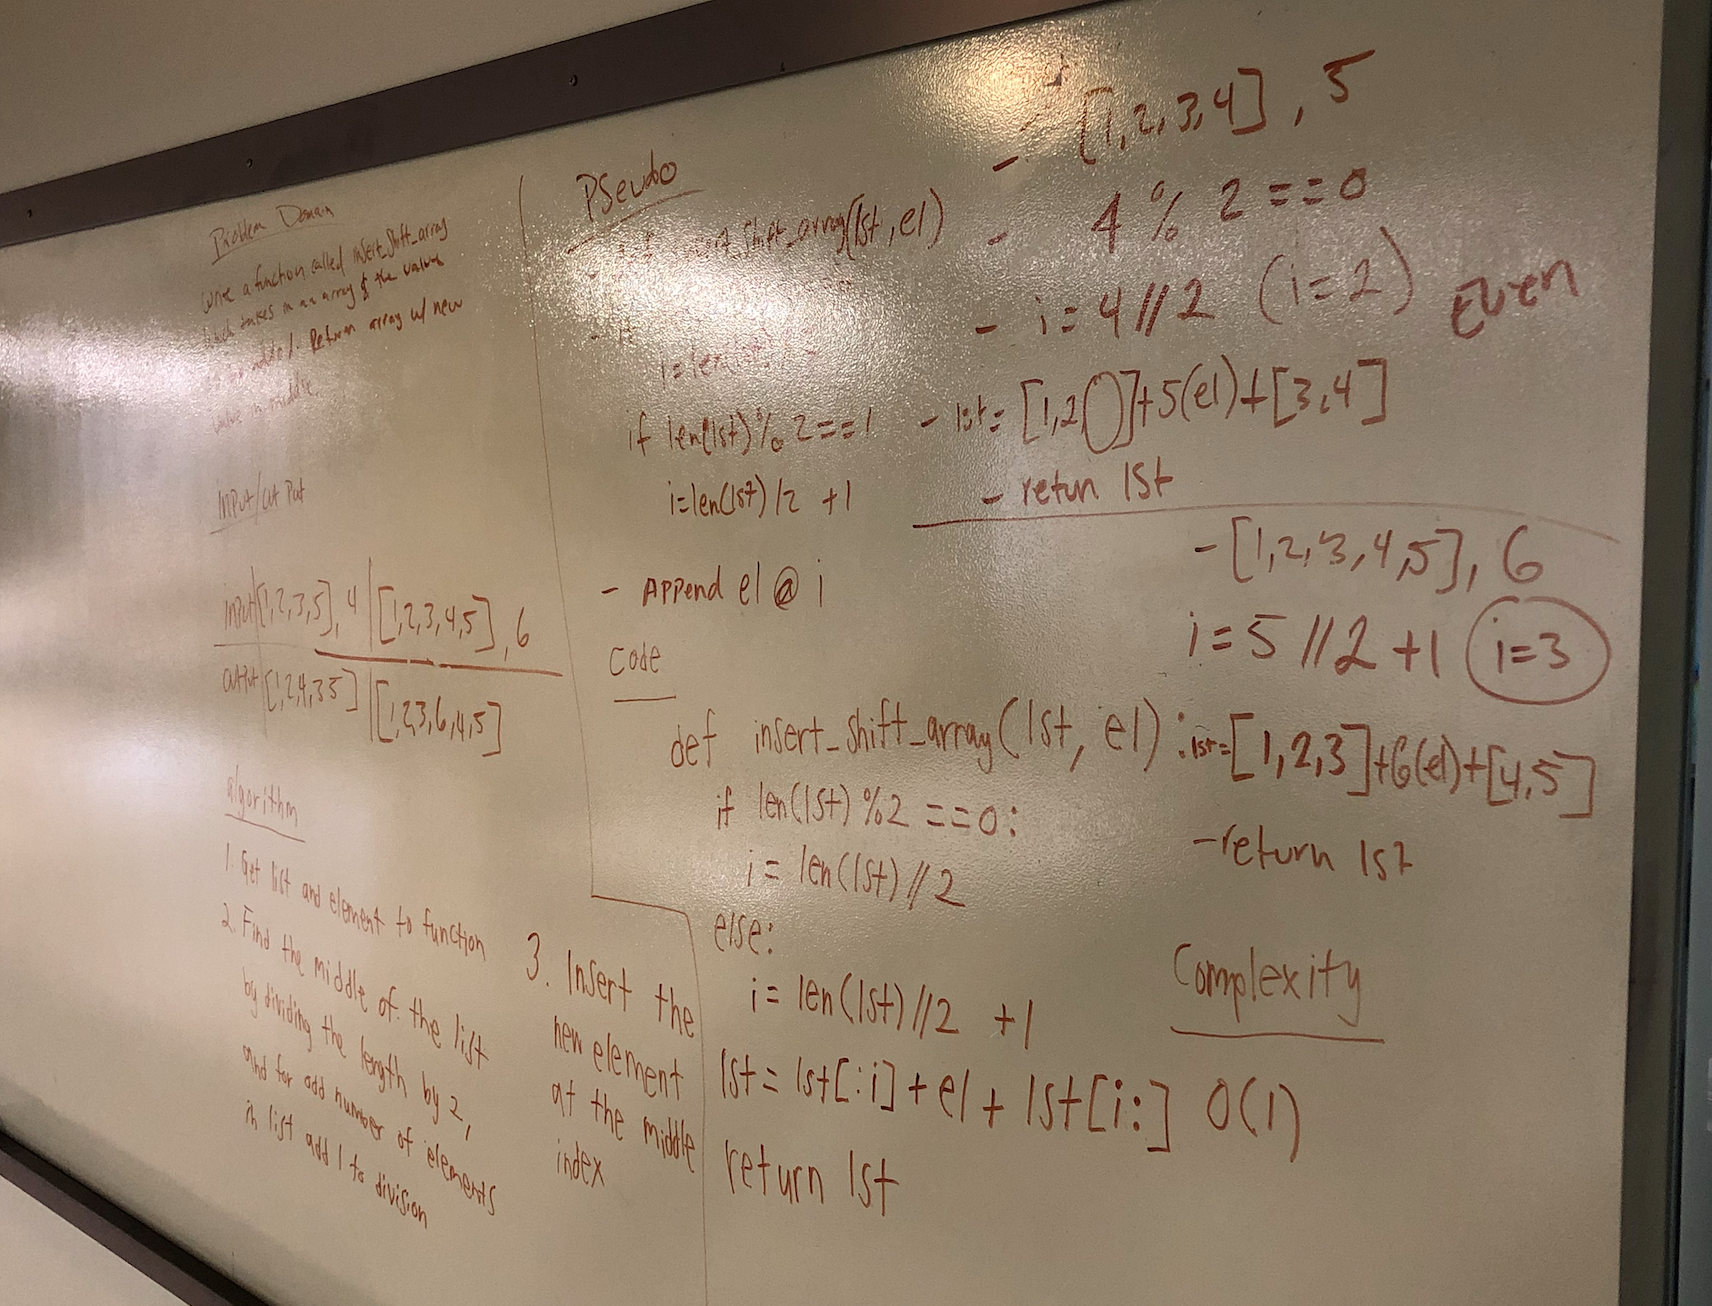 Problem Domain
Write a function called insert_shift_array
which takes in an array & the value
to be added. Return array w/ new
value in middle.
Input/Out Put
input [1,2,3,5], 4 | [1,2,3,4,5], 6
output [1,2,4,3 5] | [1,2,3,6,4,5]
algorithm
1. Get list and element to function
2. Find the middle of the list
by dividing the length by 2,
and for odd number of elements
in list add 1 to division
3. Insert the
new element
at the middle
index
PSeudo
- insert_shift_array(lst, el)
- if
i = len(lst)
if len(lst) % 2 == 1
i = len(lst) / 2 + 1
- Append el @ i
Code
def insert_shift_array(lst, el):
if len(lst) %2 == 0:
i = len(lst) // 2
else:
i = len(lst) // 2 + 1
lst = lst[:i] + el + lst[i:]
return lst
- [1,2,3,4], 5
- 4 % 2 == 0
- i = 4 // 2 (i=2) Even
- lst = [1,2,]+5(el)+[3,4]
- retun lst
- [1,2,3,4,5], 6
i = 5 // 2 +1 (i=3)
lst=[1,2,3]+6(el)+[4,5]
- return lst
Complexity
O(1)